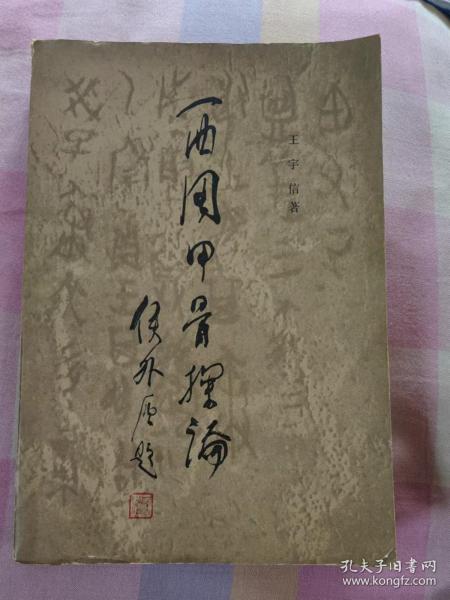 王宇信著
西周甲骨探论
侯外庐题
孔夫子旧书网
www.kongfz.com